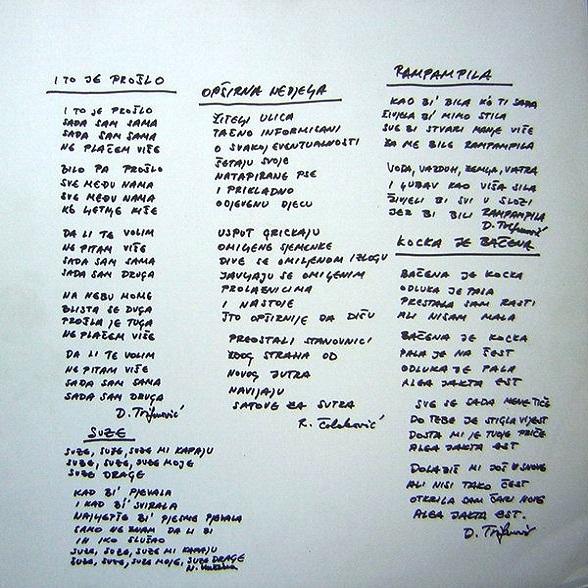 I TO JE PROŠLO
I TO JE PROŠLO
SADA SAM SAMA
SADA SAM SAMA
NE PLAČEM VIŠE
BILO PA PROŠLO
SVE MEĐU NAMA
SVE MEĐU NAMA
KO LJETNJE KIŠE
DA LI TE VOLIM
NE PITAM VIŠE
SADA SAM SAMA
SADA SAM DRUGA
NA NEBU MOME
BLISTA SE DUGA
PROŠLA JE TUGA
NE PLAČEM VIŠE
DA LI TE VOLIM
NE PITAM VIŠE
SADA SAM SAMA
SADA SAM DRUGA
D. Trifunović
SUZE
SUZE, SUZE, SUZE MI KAPAJU
SUZE, SUZE, SUZE MOJE
SUZE DRAGE
KAD BI' PJEVALA
I KAD BI' SVIRALA
NAJLJEPŠE BI' PJESME PJEVALA
SAMO NE ZNAM DA LI BI
IH IKO SLUŠAO
SUZE, SUZE, SUZE MI KAPAJU
SUZE, SUZE, SUZE MOJE, SUZE DRAGE
OPŠIRNA NEDJELJA
ŽITELJI ULICA
TAČNO INFORMISANI
O SVAKOJ EVENTUALNOSTI
ŠETAJU SVOJE
NATAPIRANE PSE
I PRIKLADNO
ODJEVENU DJECU
USPUT GRICKAJU
OMILJENE SJEMENKE
DIVE SE OMILJENOM IZLOGU
JAVLJAJU SE OMILJENIM
PROLAZNICIMA
I NASTOJE
ŠTO OPŠIRNIJE DA DIŠU
PREOSTALI STANOVNICI
ZBOG STRAHA OD
NOVOG JUTRA
NAVIJAJU
SATOVE ZA SUTRA
R. Čolaković
RAMPAMPILA
KAO BI' BILA KO TI SADA
ŽIVJELA BI' MIMO STILA
SVE BI STVARI MANJE VIŠE
ZA ME BILE RAMPAMPILA
VODA, VAZDUH, ZEMLJA, VATRA
I LJUBAV KAO VIŠA SILA
ŽIVJELI BI SVI U SLOZI
JER BI BILI RAMPAMPILA
D. Trifunović
KOCKA JE BAČENA
BAČENA JE KOCKA
ODLUKA JE PALA
PRESTALA SAM RASTI
ALI NISAM MALA
BAČENA JE KOCKA
PALA JE NA ŠEST
ODLUKA JE PALA
ALEA JAKTA EST
SVE SE SADA MENE TIČE
DO TEBE JE STIGLA VIJEST
DOSTA MI JE TVOJE PRIČE
ALEA JAKTA EST
DOLAZIŠ MI JOŠ U SNOVE
ALI NISI TAKO ČEST
OTKRILA SAM ČARI NOVE
ALEA JAKTA EST.
D. Trifunović